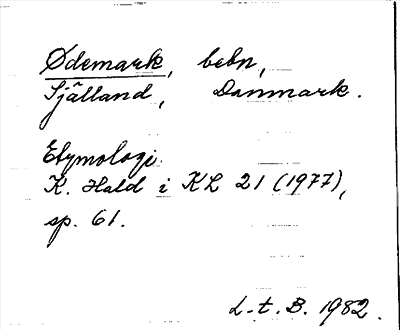 Ødemark, bebn,
Själland, Danmark.
Etymologi:
K. Hald i KL 21 (1977),
sp. 61.
L-t. B. 1982.